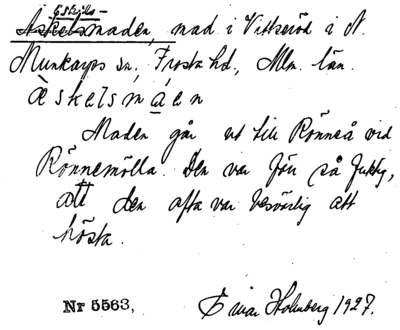 Eskils-
Askelsmaden, mad i Vittseröd i N.
Munkarps sn, Frosta hd, Mlm. län.
èskelsmáen
Maden går ut till Rönneå vid
Rönnemölla. Den var förr så fuktig,
att den ofta var besvärlig att
hösta.
Nr 5563, Einar Holmberg 1927.